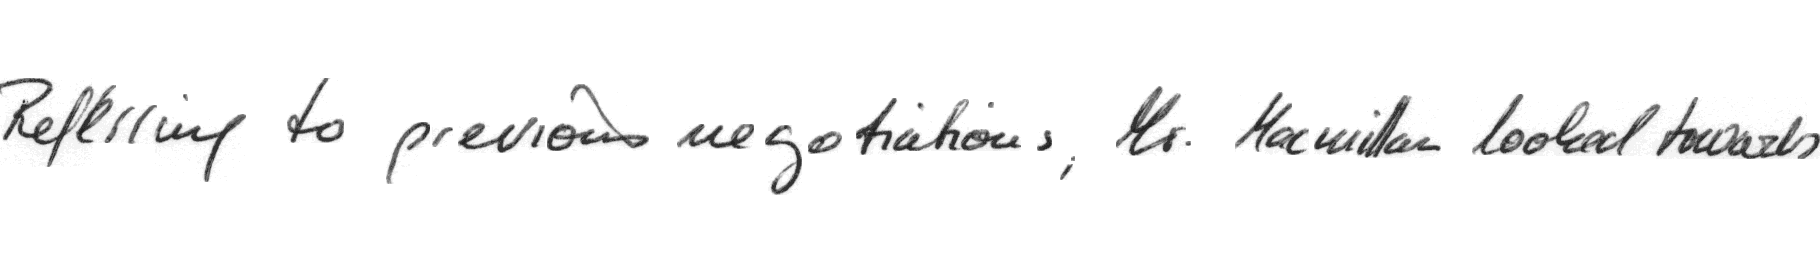 Referring to previous negotiations, Mr. Macmillan looked towards